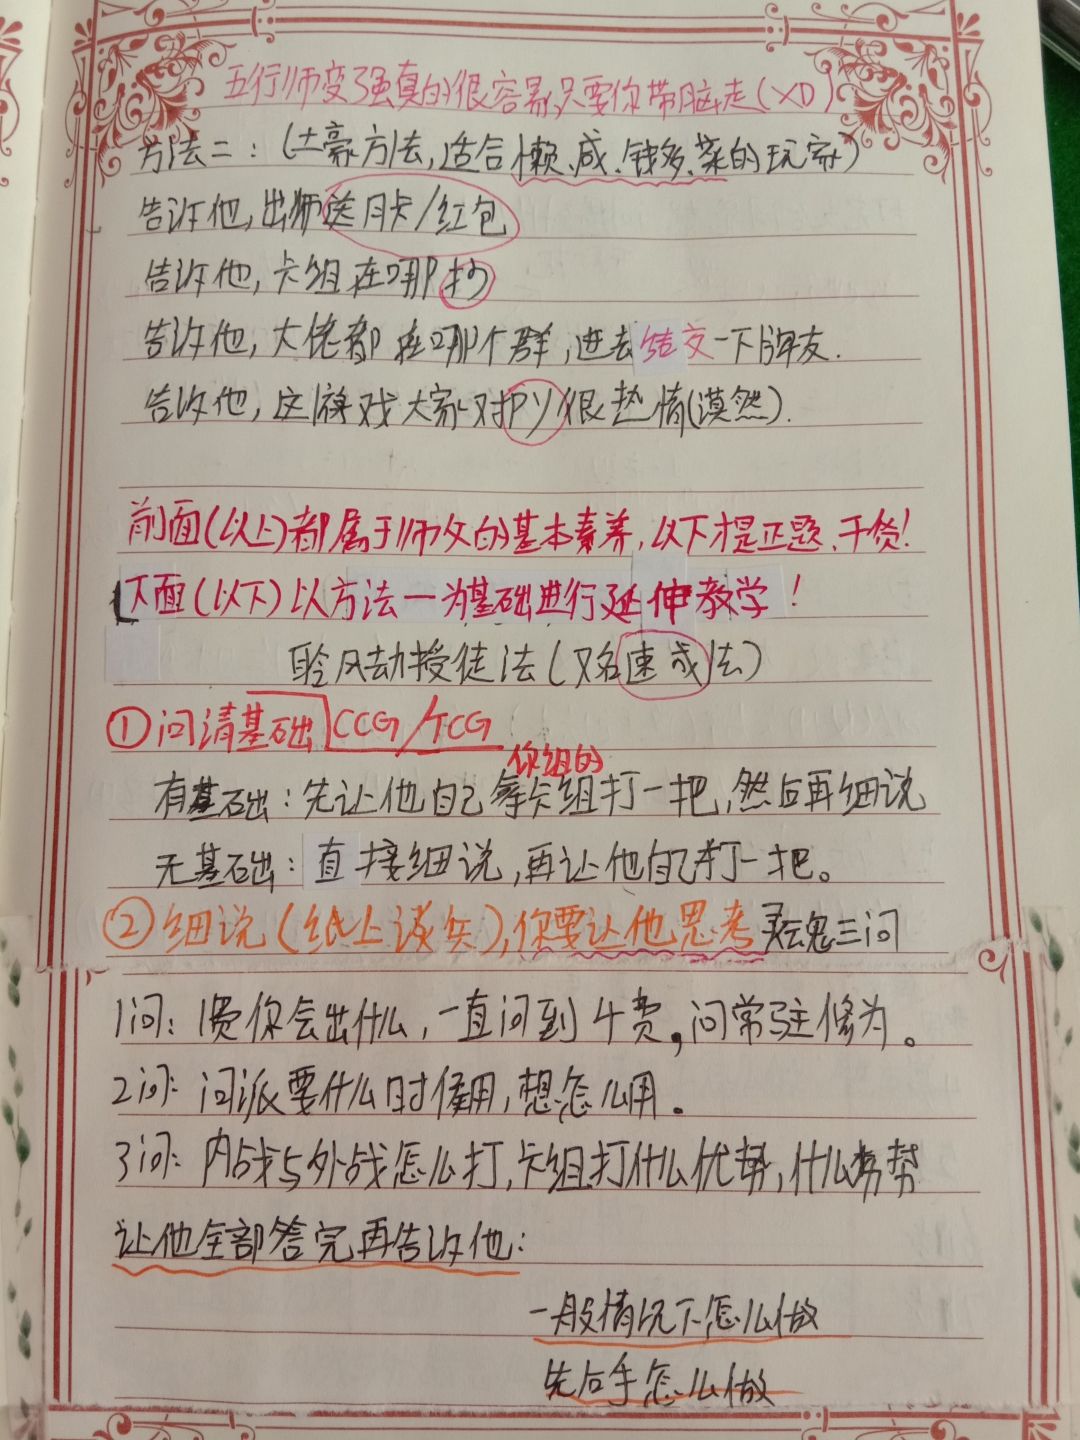 五行师变强真的很容易,只要你带脑走(XD)
方法二:(土豪方法,适合懒、咸、钱多、菜的玩家)
告诉他,出师送月卡/红包
告诉他,卡组在哪抄
告诉他,大佬都在哪个群,进去结交一下牌友.
告诉他,这游戏大家对PY很热情(漠然).
前面(以上)都属于师父的基本素养,以下才是正题、干货!
下面(以下)以方法一为基础进行延伸教学!
聆风劫授徒法(又名速成法)
①问清基础 CCG/TCG
你组的
有基础:先让他自己拿卡组打一把,然后再细说
无基础:直接细说,再让他自己打一把。
②细说(纸上谈兵),你要让他思考 灵魂三问
1问:1费你会出什么,一直问到4费,问常驻修为。
2问:问派要什么时候用,想怎么用。
3问:内战与外战怎么打,卡组打什么优势,什么劣势
让他全部答完再告诉他:
一般情况下怎么做
先后手怎么做